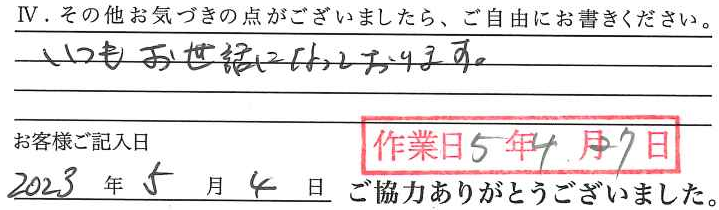 Ⅳ．その他お気づきの点がございましたら、ご自由にお書きください。
いつもお世話になっております。
お客様ご記入日
作業日5年4月27日
2023年5月4日
ご協力ありがとうございました。